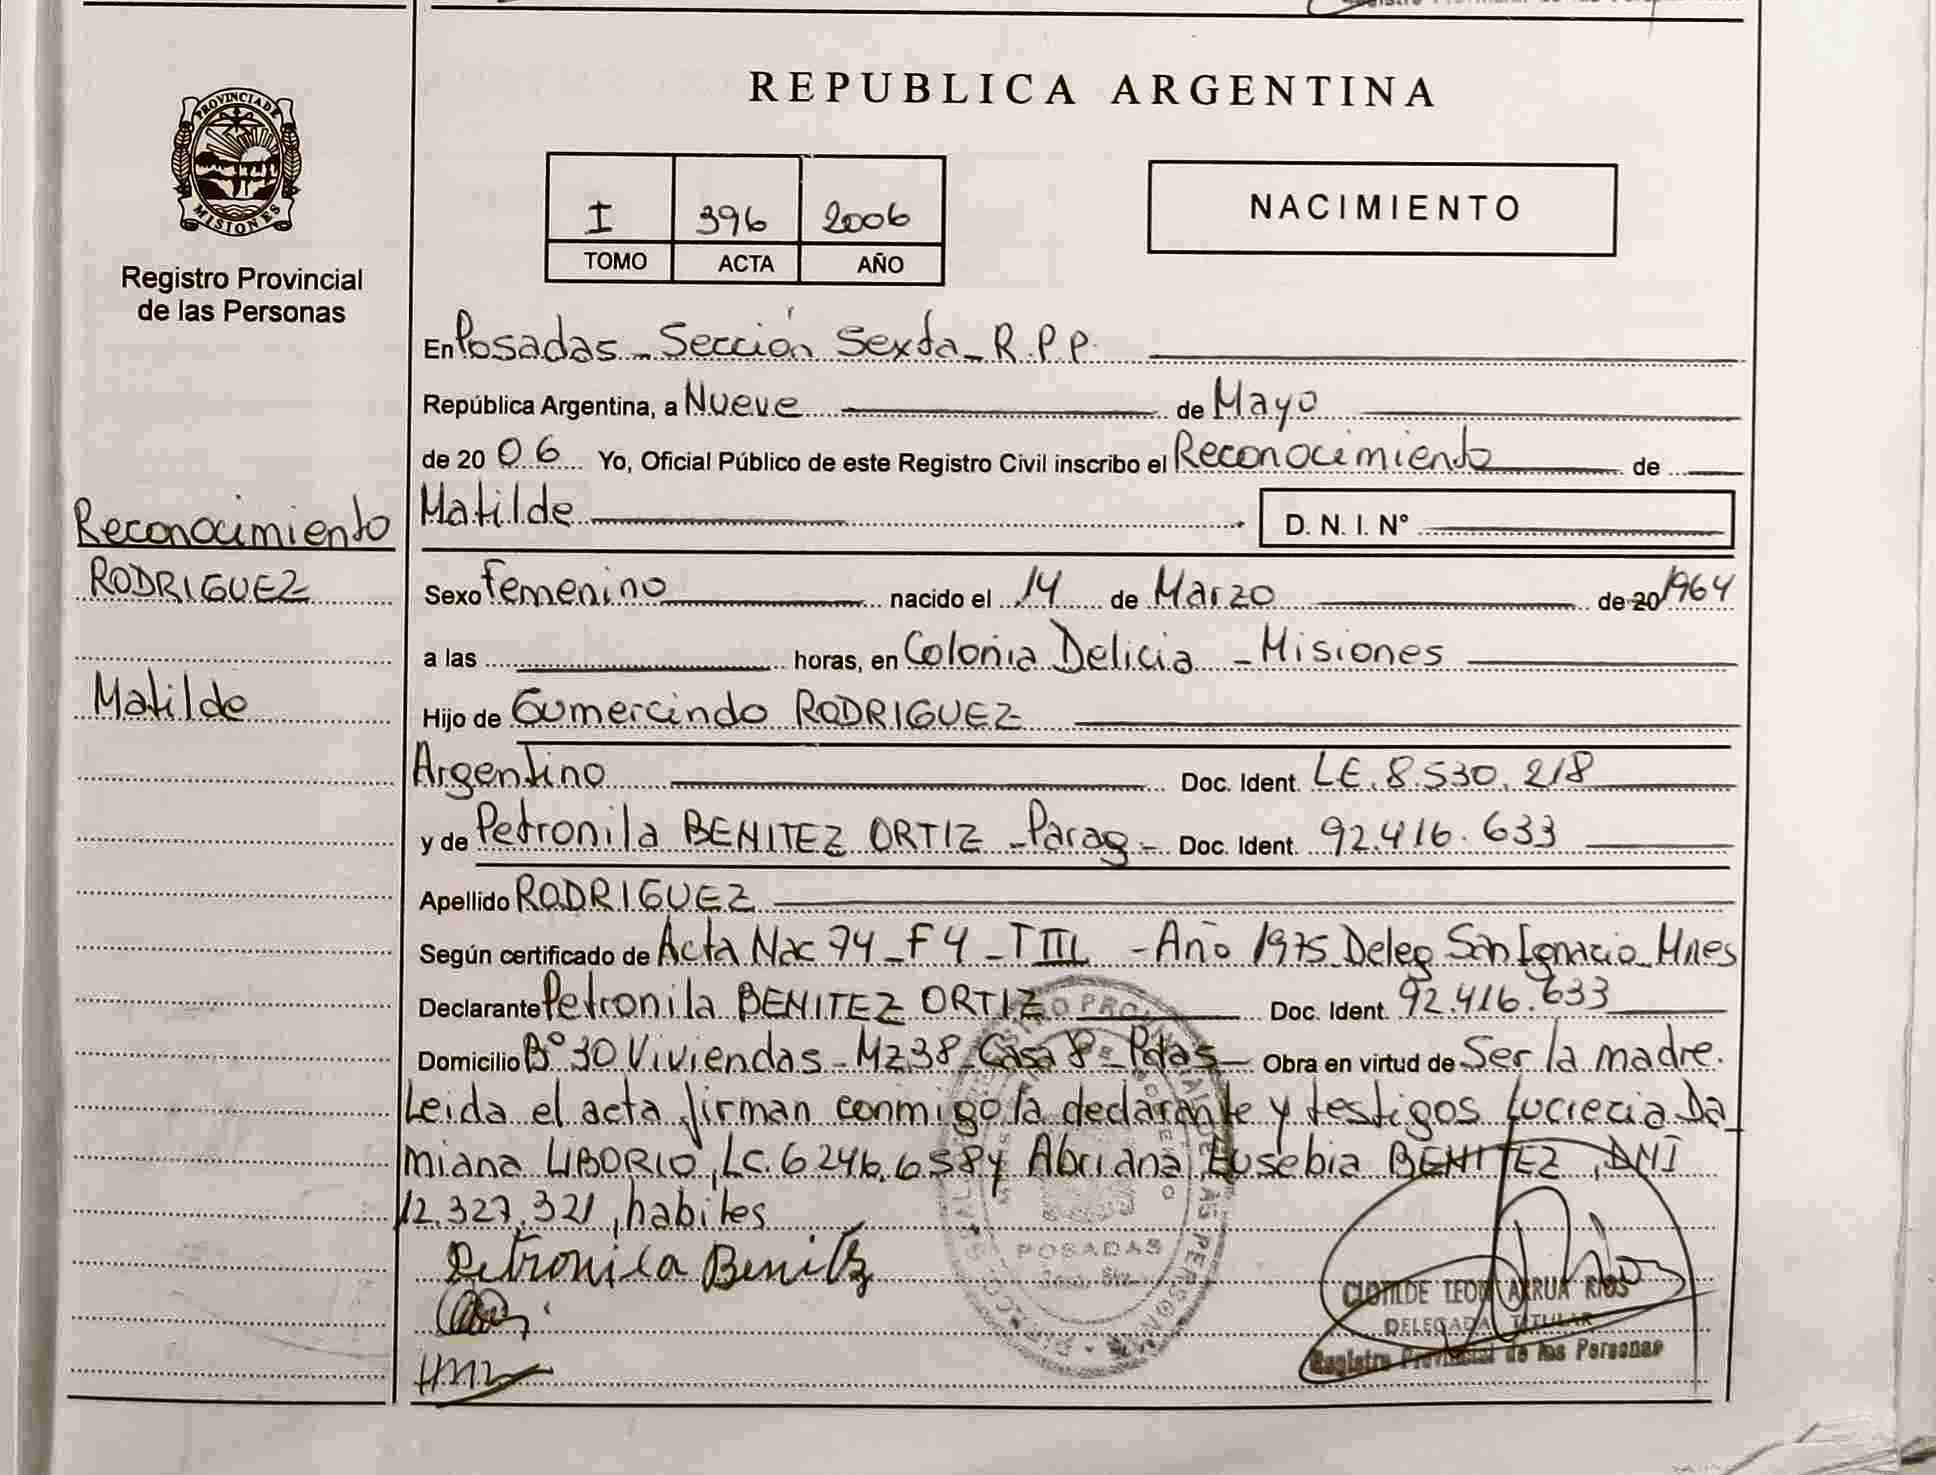 REPUBLICA ARGENTINA
PROVINCIA DE
MISIONES
Registro Provincial
de las Personas
I 396 2006
TOMO ACTA AÑO
NACIMIENTO
En Posadas - Sección Sexta - R.P.P.
República Argentina, a Nueve de Mayo
de 20 06 Yo, Oficial Público de este Registro Civil inscribo el Reconocimiento de
Matilde D. N. I. N°
Reconocimiento
RODRIGUEZ
Matilde
Sexo femenino nacido el 14 de Marzo de 20 1964
a las horas, en Colonia Delicia - Misiones
Hijo de Gumercindo RODRIGUEZ
Argentino Doc. Ident. LE. 8.530.218
y de Petronila BENITEZ ORTIZ - Parag - Doc. Ident. 92.416.633
Apellido RODRIGUEZ
Según certificado de Acta Nac 74 - F 4 - T III - Año 1975 Deleg San Ignacio Mnes
Declarante Petronila BENITEZ ORTIZ Doc. Ident. 92.416.633
Domicilio B° 30 Viviendas - Mz 38 - Casa 8 - Pdas - Obra en virtud de Ser la madre.
Leida el acta firman conmigo la declarante y testigos Lucrecia Da
miana LIBORIO, LC. 6246.658 y Abriana Eusebia BENITEZ, DNI
12.327.321, habiles
Petronila Benitez
POSADAS
CLOTILDE LEON ARRUA RIOS
DELEGADA TITULAR
Registro Provincial de las Personas